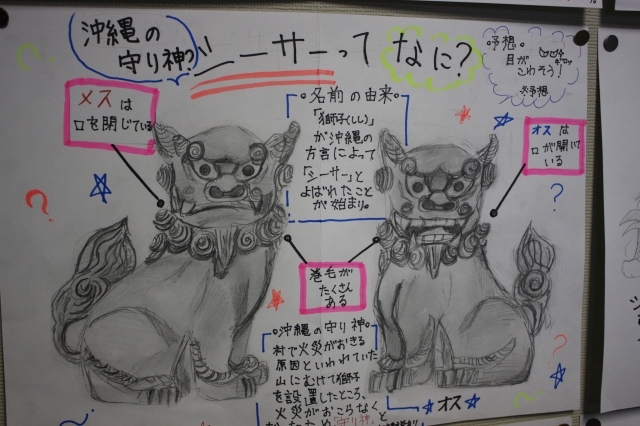 沖縄の
守り神?
シーサーって なに?
予想
目が
こわそう!
ギロッ
※予想
メスは
口を閉じている
名前の由来
「獅子(しし)」
が沖縄の
方言によって
「シーサー」と
よばれたこと
が始まり。
オスは
口が開けて
いる
巻毛が
たくさん
ある
沖縄の守り神
村で火災がおきる
原因といわれていた
山にむけて獅子
を設置したところ、
火災がおこらなく
「守り神」と
オス